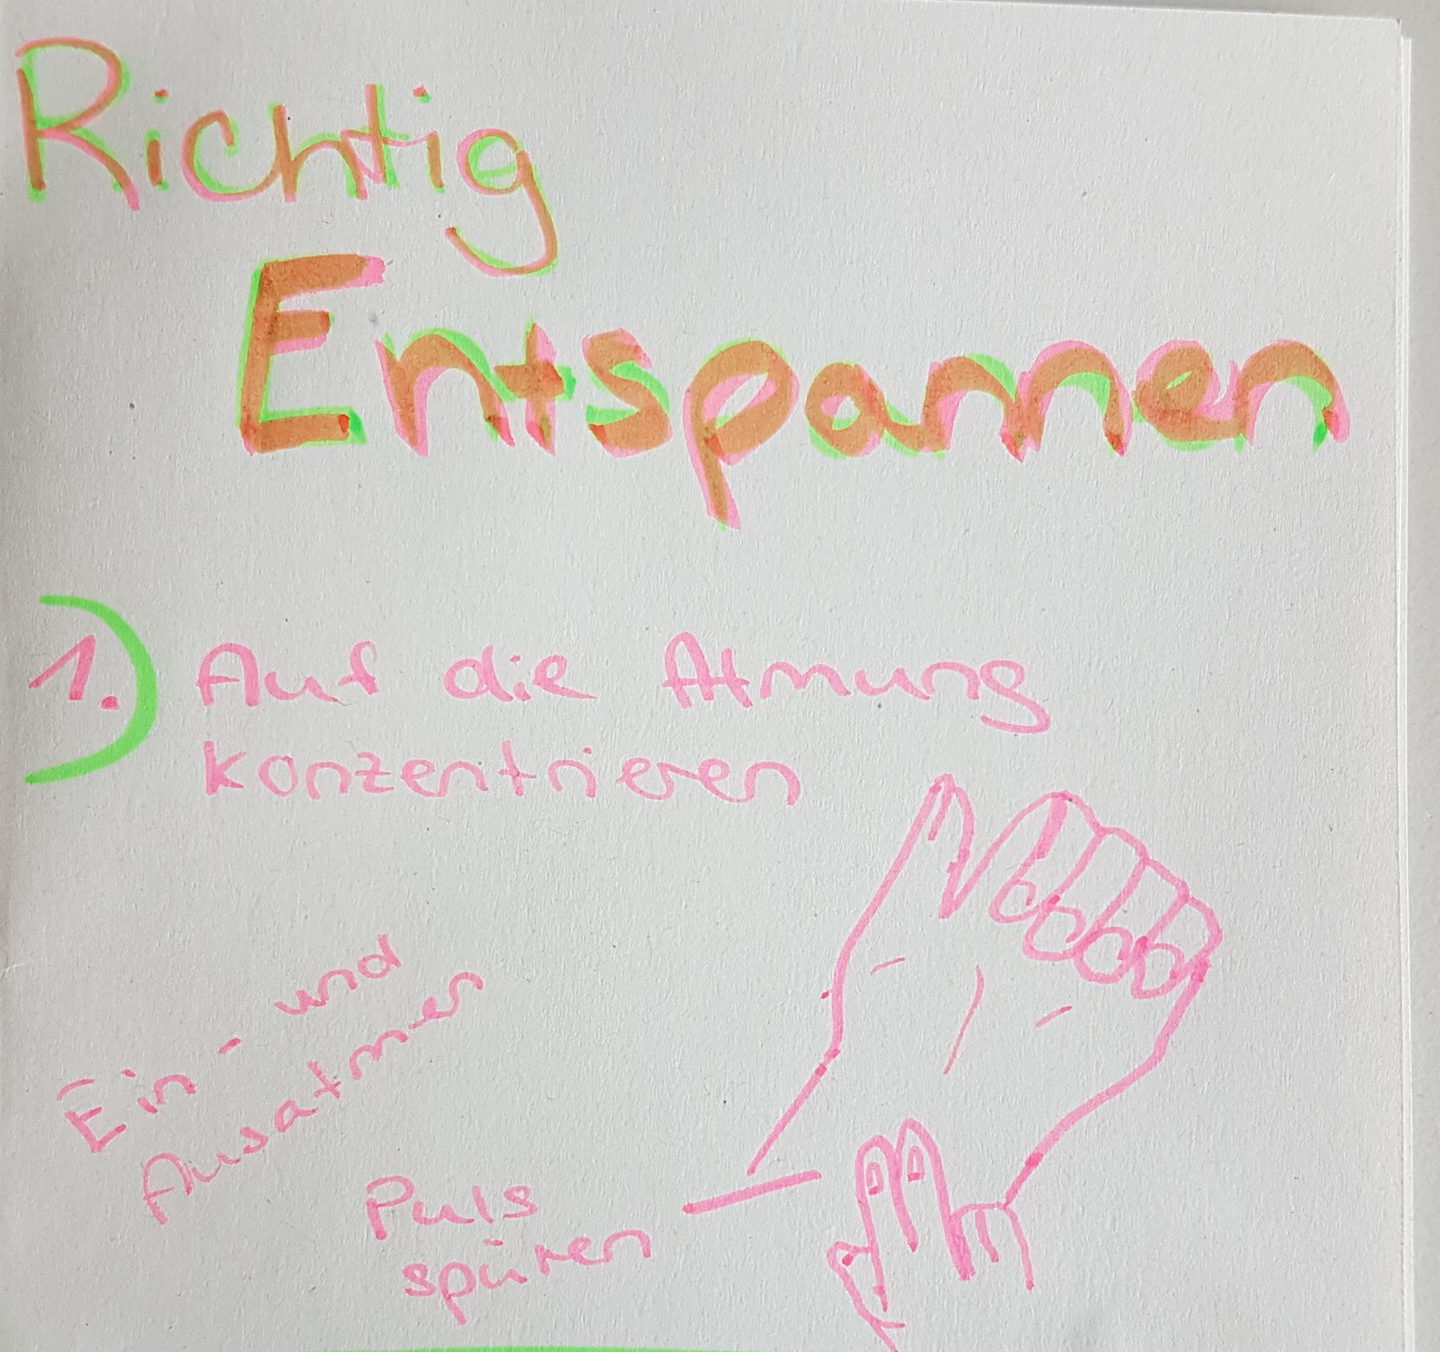 Richtig
Entspannen
1.) Auf die Atmung
konzentrieren
Ein- und
Ausatmen
Puls
spüren